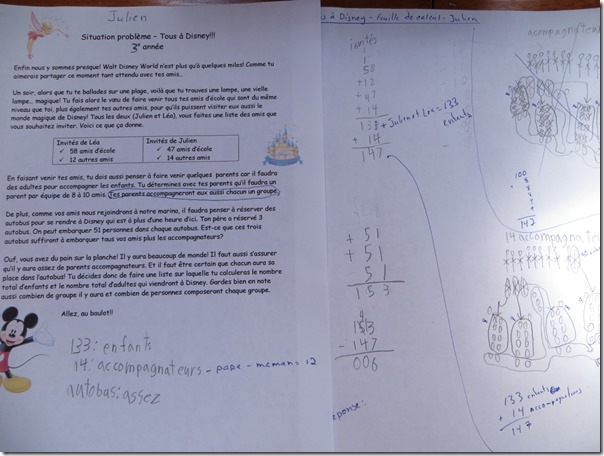 Julien
Situation problème – Tous à Disney!!!
3e année
Enfin nous y sommes presque! Walt Disney World n'est plus qu'à quelques miles! Comme tu
aimerais partager ce moment tant attendu avec tes amis...
Un soir, alors que tu te ballades sur une plage, voilà que tu trouves une lampe, une vieille
lampe... magique! Tu fais alors le vœu de faire venir tous tes amis d'école qui sont du même
niveau que toi, plus également tes autres amis, pour qu'ils puissent visiter eux aussi le
monde magique de Disney! Tous les deux (Julien et Léa), vous faites une liste des amis que
vous souhaitez inviter. Voici ce que ça donne.
Invités de Léa
✓ 58 amis d'école
✓ 12 autres amis
Invités de Julien
✓ 47 amis d'école
✓ 14 autres amis
En faisant venir tes amis, tu dois aussi penser à faire venir quelques parents car il faudra
des adultes pour accompagner les enfants. Tu détermines avec tes parents qu'il faudra un
parent par équipe de 8 à 10 amis. Tes parents accompagneront eux aussi chacun un groupe.
De plus, comme vos amis nous rejoindrons à notre marina, il faudra penser à réserver des
autobus pour se rendre à Disney qui est à plus d'une heure d'ici. Ton père a réservé 3
autobus. On peut embarquer 51 personnes dans chaque autobus. Est-ce que ces trois
autobus suffiront à embarquer tous vos amis plus les accompagnateurs?
Ouf, vous avez du pain sur la planche! Il y aura beaucoup de monde! Il faut aussi s'assurer
qu'il y aura assez de parents accompagnateurs. Et il faut être certain que chacun aura sa
place dans l'autobus! Tu décides donc de faire une liste sur laquelle tu calculeras le nombre
total d'enfants et le nombre total d'adultes qui viendront à Disney. Gardes bien en note
aussi combien de groupe il y aura et combien de personnes composeront chaque groupe.
Allez, au boulot!!
133: enfants
14: accompagnateurs - papa - maman = 12
autobus: assez
à Disney – feuille de calcul – Julien
invités
58
+12
+47
+14
133 + Julien et Léa = 133
enfants
+ 14
147
+ 51
+ 51
51
153
153
- 147
006
147
14 accompagnateurs
133 enfants
+ 14 accompagnateurs
147